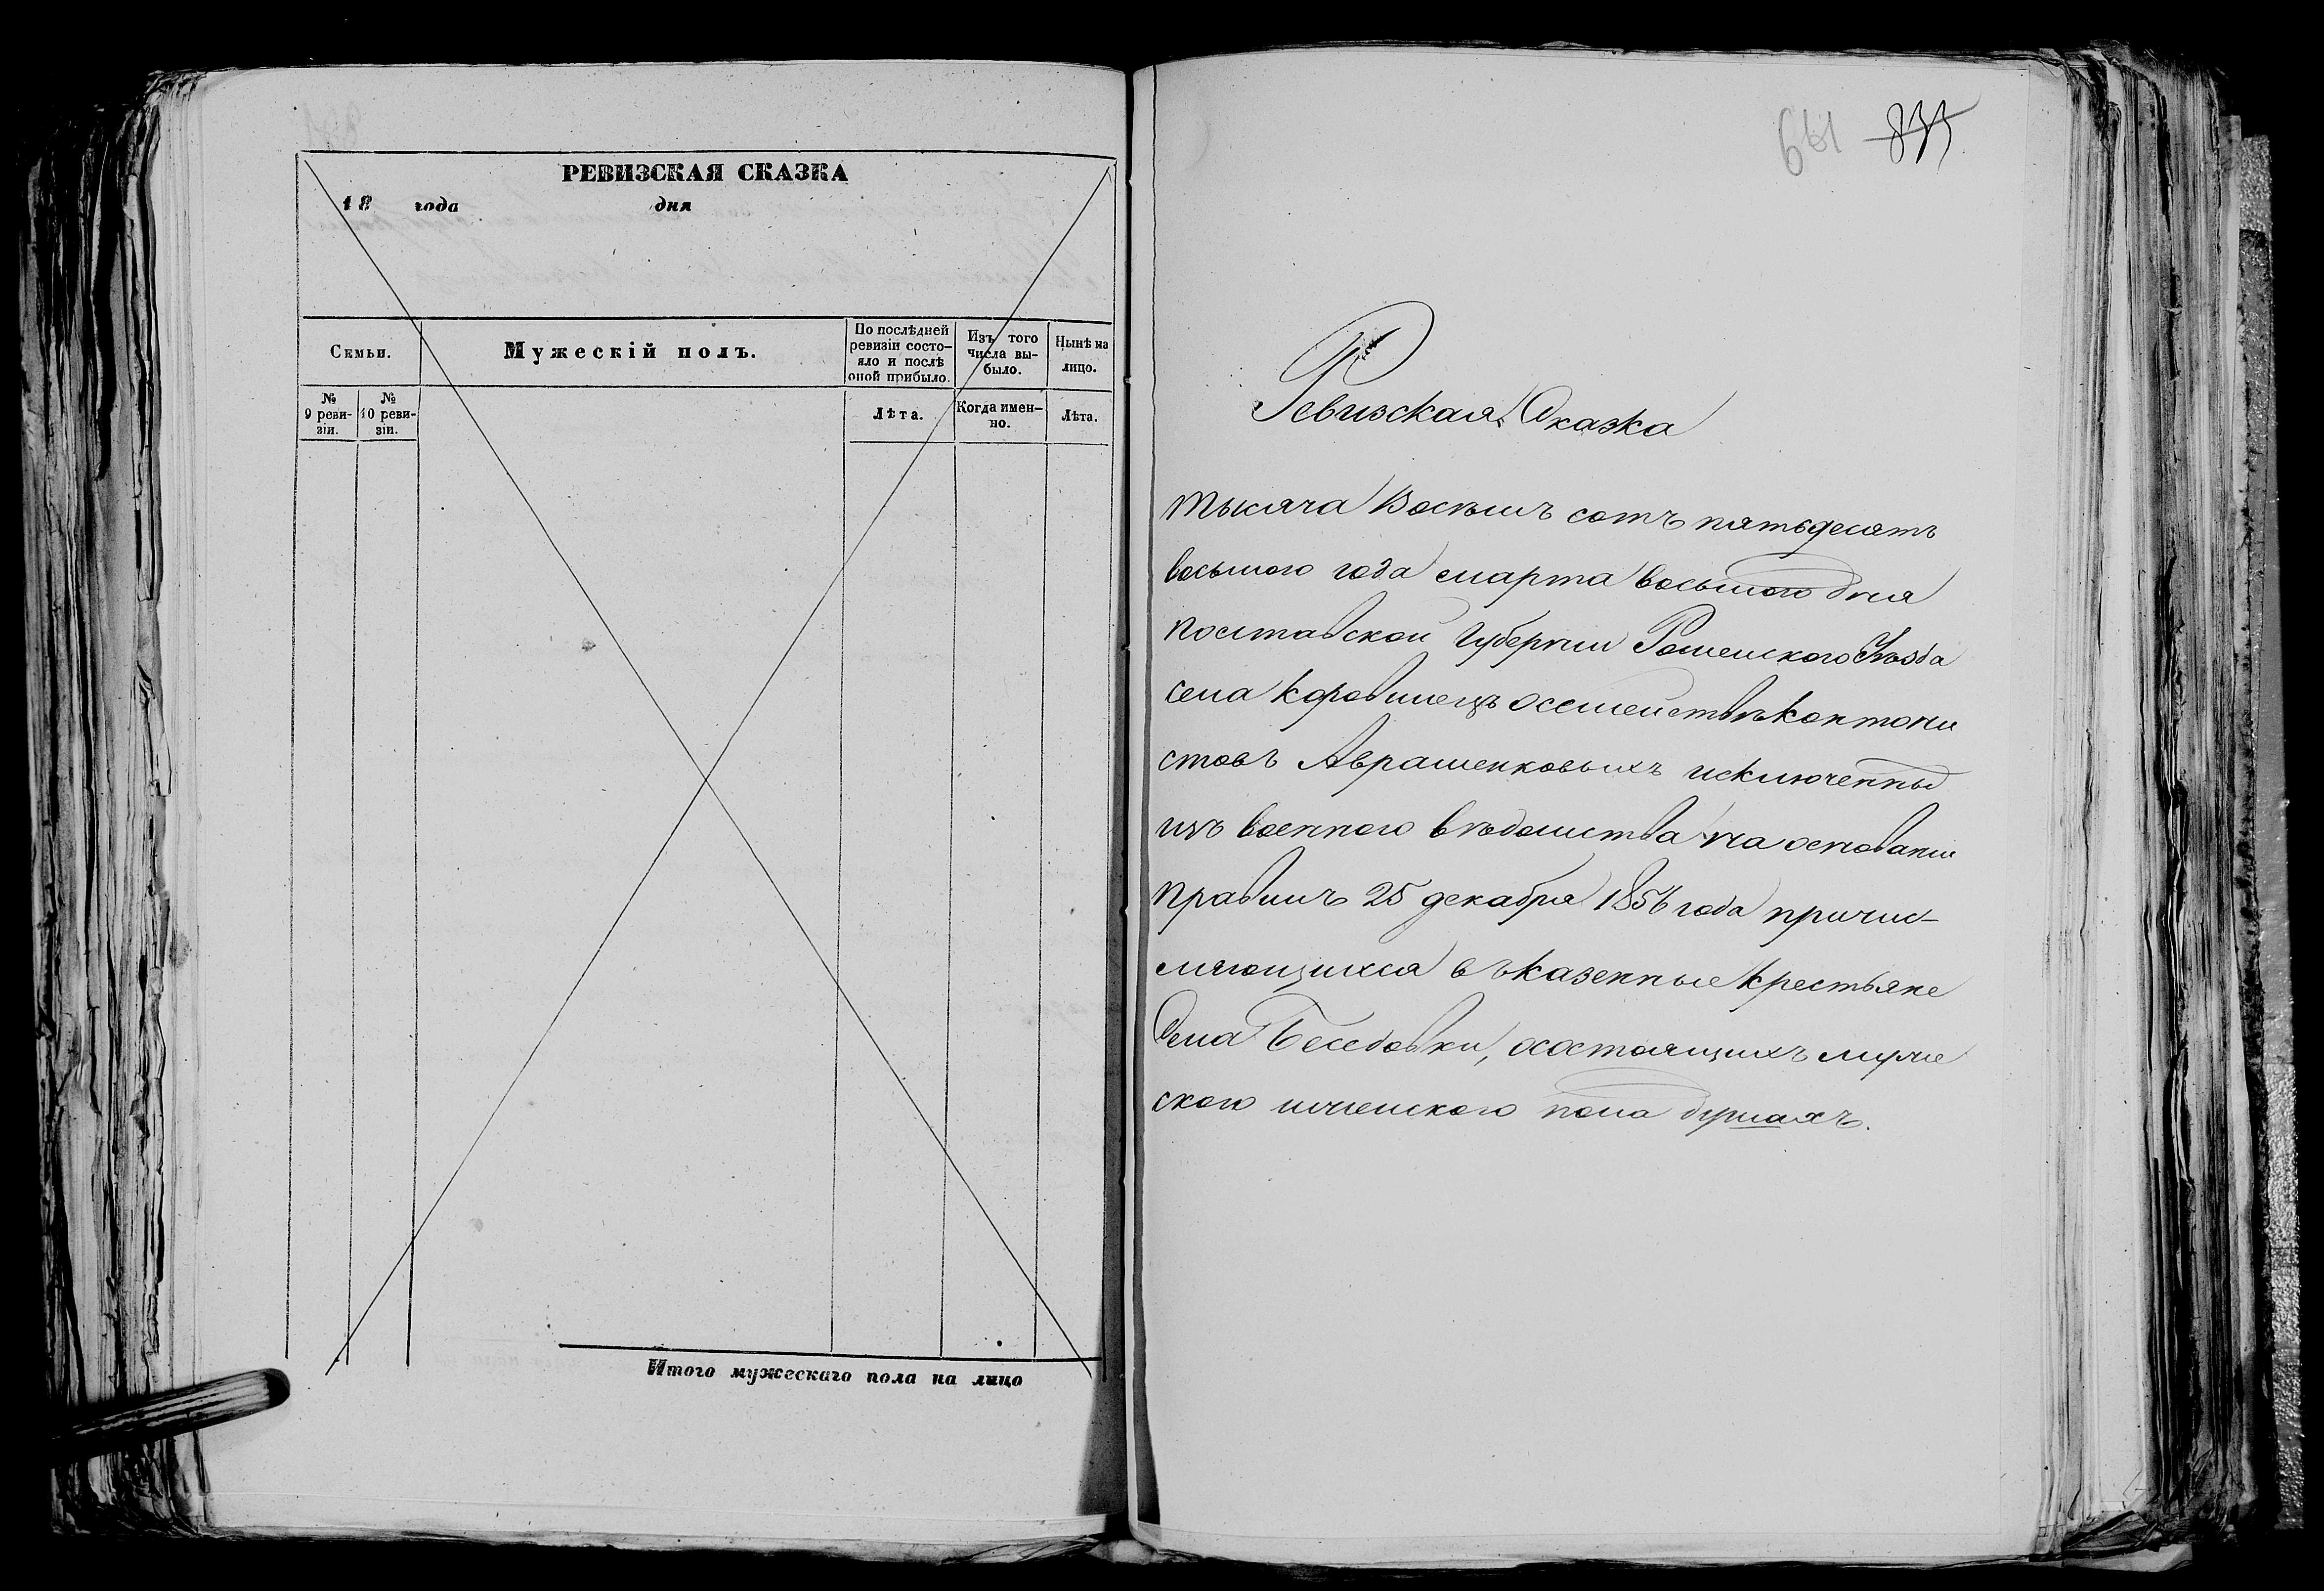 РЕВИЗСКАЯ СКАЗКА
18 года дня
Семьи.
Мужескій полъ.
По послѣдней ревизіи состо-
яло и послѣ оной прибыло.
Изъ того числа вы-
было.
Нынѣ на лицо.
№ 9 реви-
зіи.
№ 10 реви-
зіи.
Лѣта.
Когда имен-
но.
Лѣта.
Итого мужескаго пола на лицо
641 835
Ревизская Сказка
тысяча Восемъ сотъ пятьдесятъ
восьмого года марта восьмого дня
полтавской Губернии Роменского Уѣзда
села Коровинецъ осемействѣ Контони
стовъ Аврашенковыхъ исключенны
изъ военного вѣдомства на основании
правилъ 25 декабря 1856 года причис-
ляющихся въ казенные Крестьяне
Села Беседовки, осостоящихъ муже
ского иженского пола душахъ.